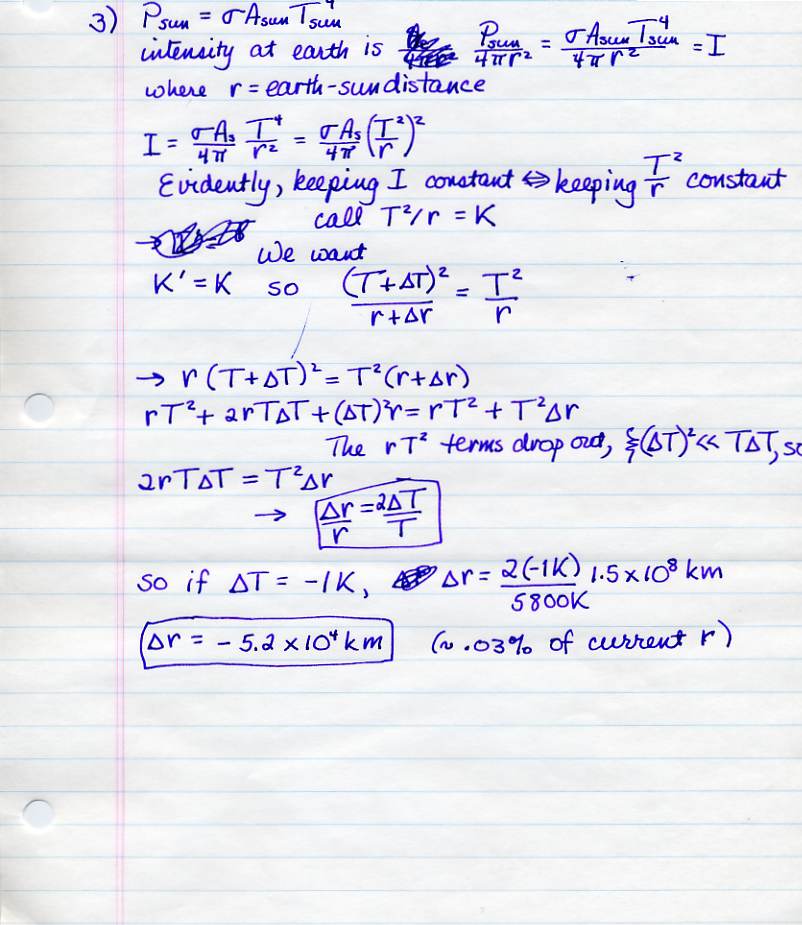 3) Psun = σ Asun Tsun⁴
intensity at earth is Psun/4πr² = σ Asun Tsun⁴/4πr² = I
where r = earth-sun distance
I = σAs/4π T⁴/r² = σAs/4π (T²/r)²
Evidently, keeping I constant ⇔ keeping T²/r constant
call T²/r = K
We want
K' = K so (T+ΔT)²/r+Δr = T²/r
→ r(T+ΔT)² = T²(r+Δr)
rT² + 2rTΔT + (ΔT)²r = rT² + T²Δr
The rT² terms drop out, & (ΔT)² << TΔT, so
2rTΔT = T²Δr
→ Δr/r = 2ΔT/T
so if ΔT = -1K, Δr = 2(-1K)/5800K 1.5 x 10⁸ km
Δr = - 5.2 x 10⁴ km (~ .03% of current r)